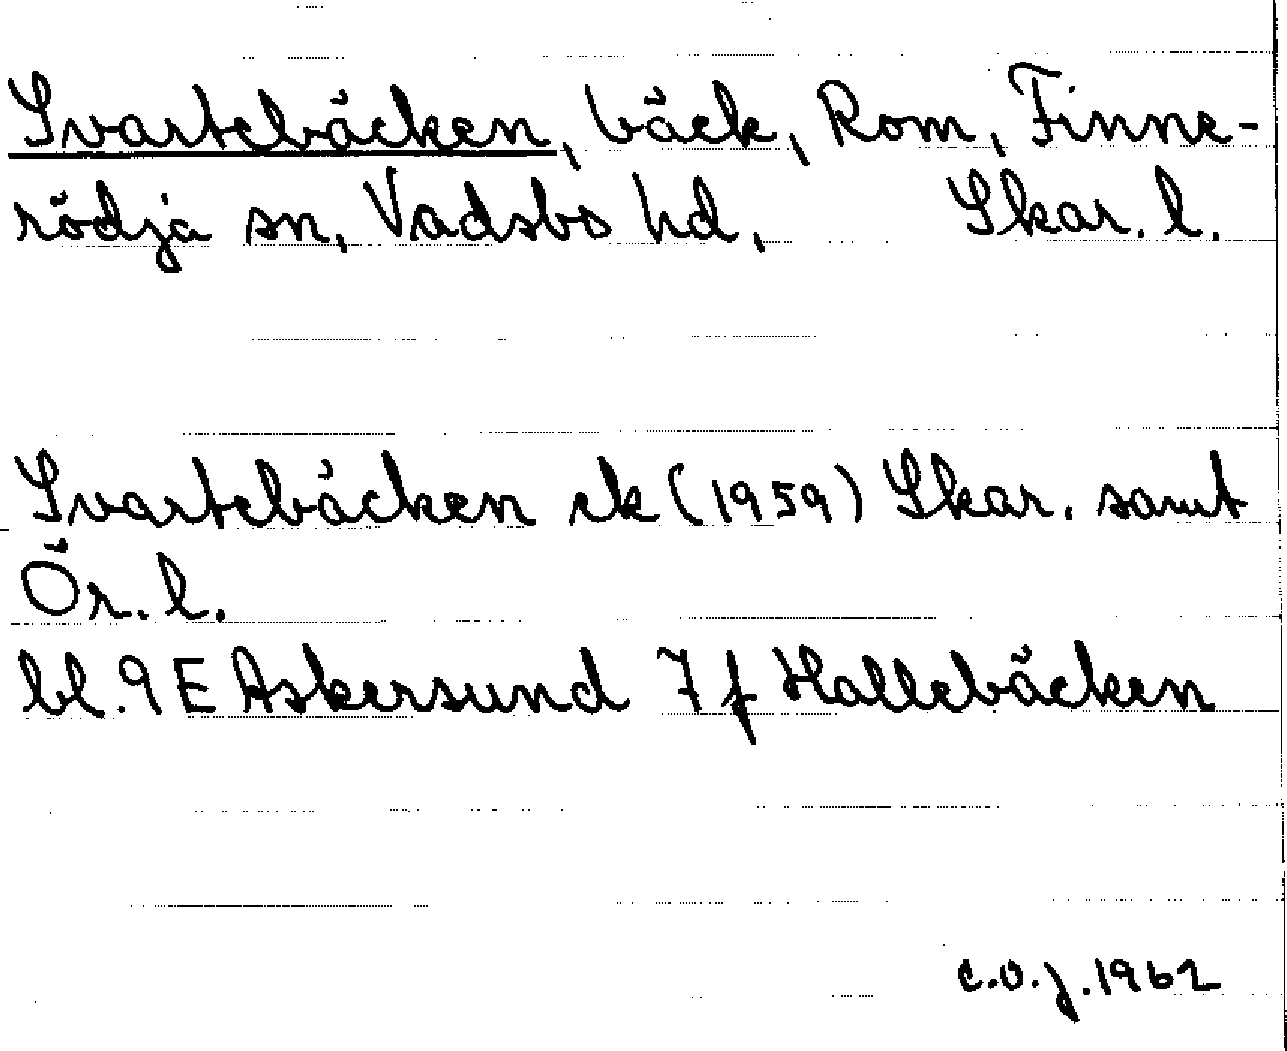 Svartebäcken, bäck, Rom, Finne-
rödja sn, Vadsbo hd, Skar. l.
Svartebäcken ek (1959) Skar. samt
Ör. l.
bl. 9 E Askersund 7 f Hallebäcken
C.O.J. 1962